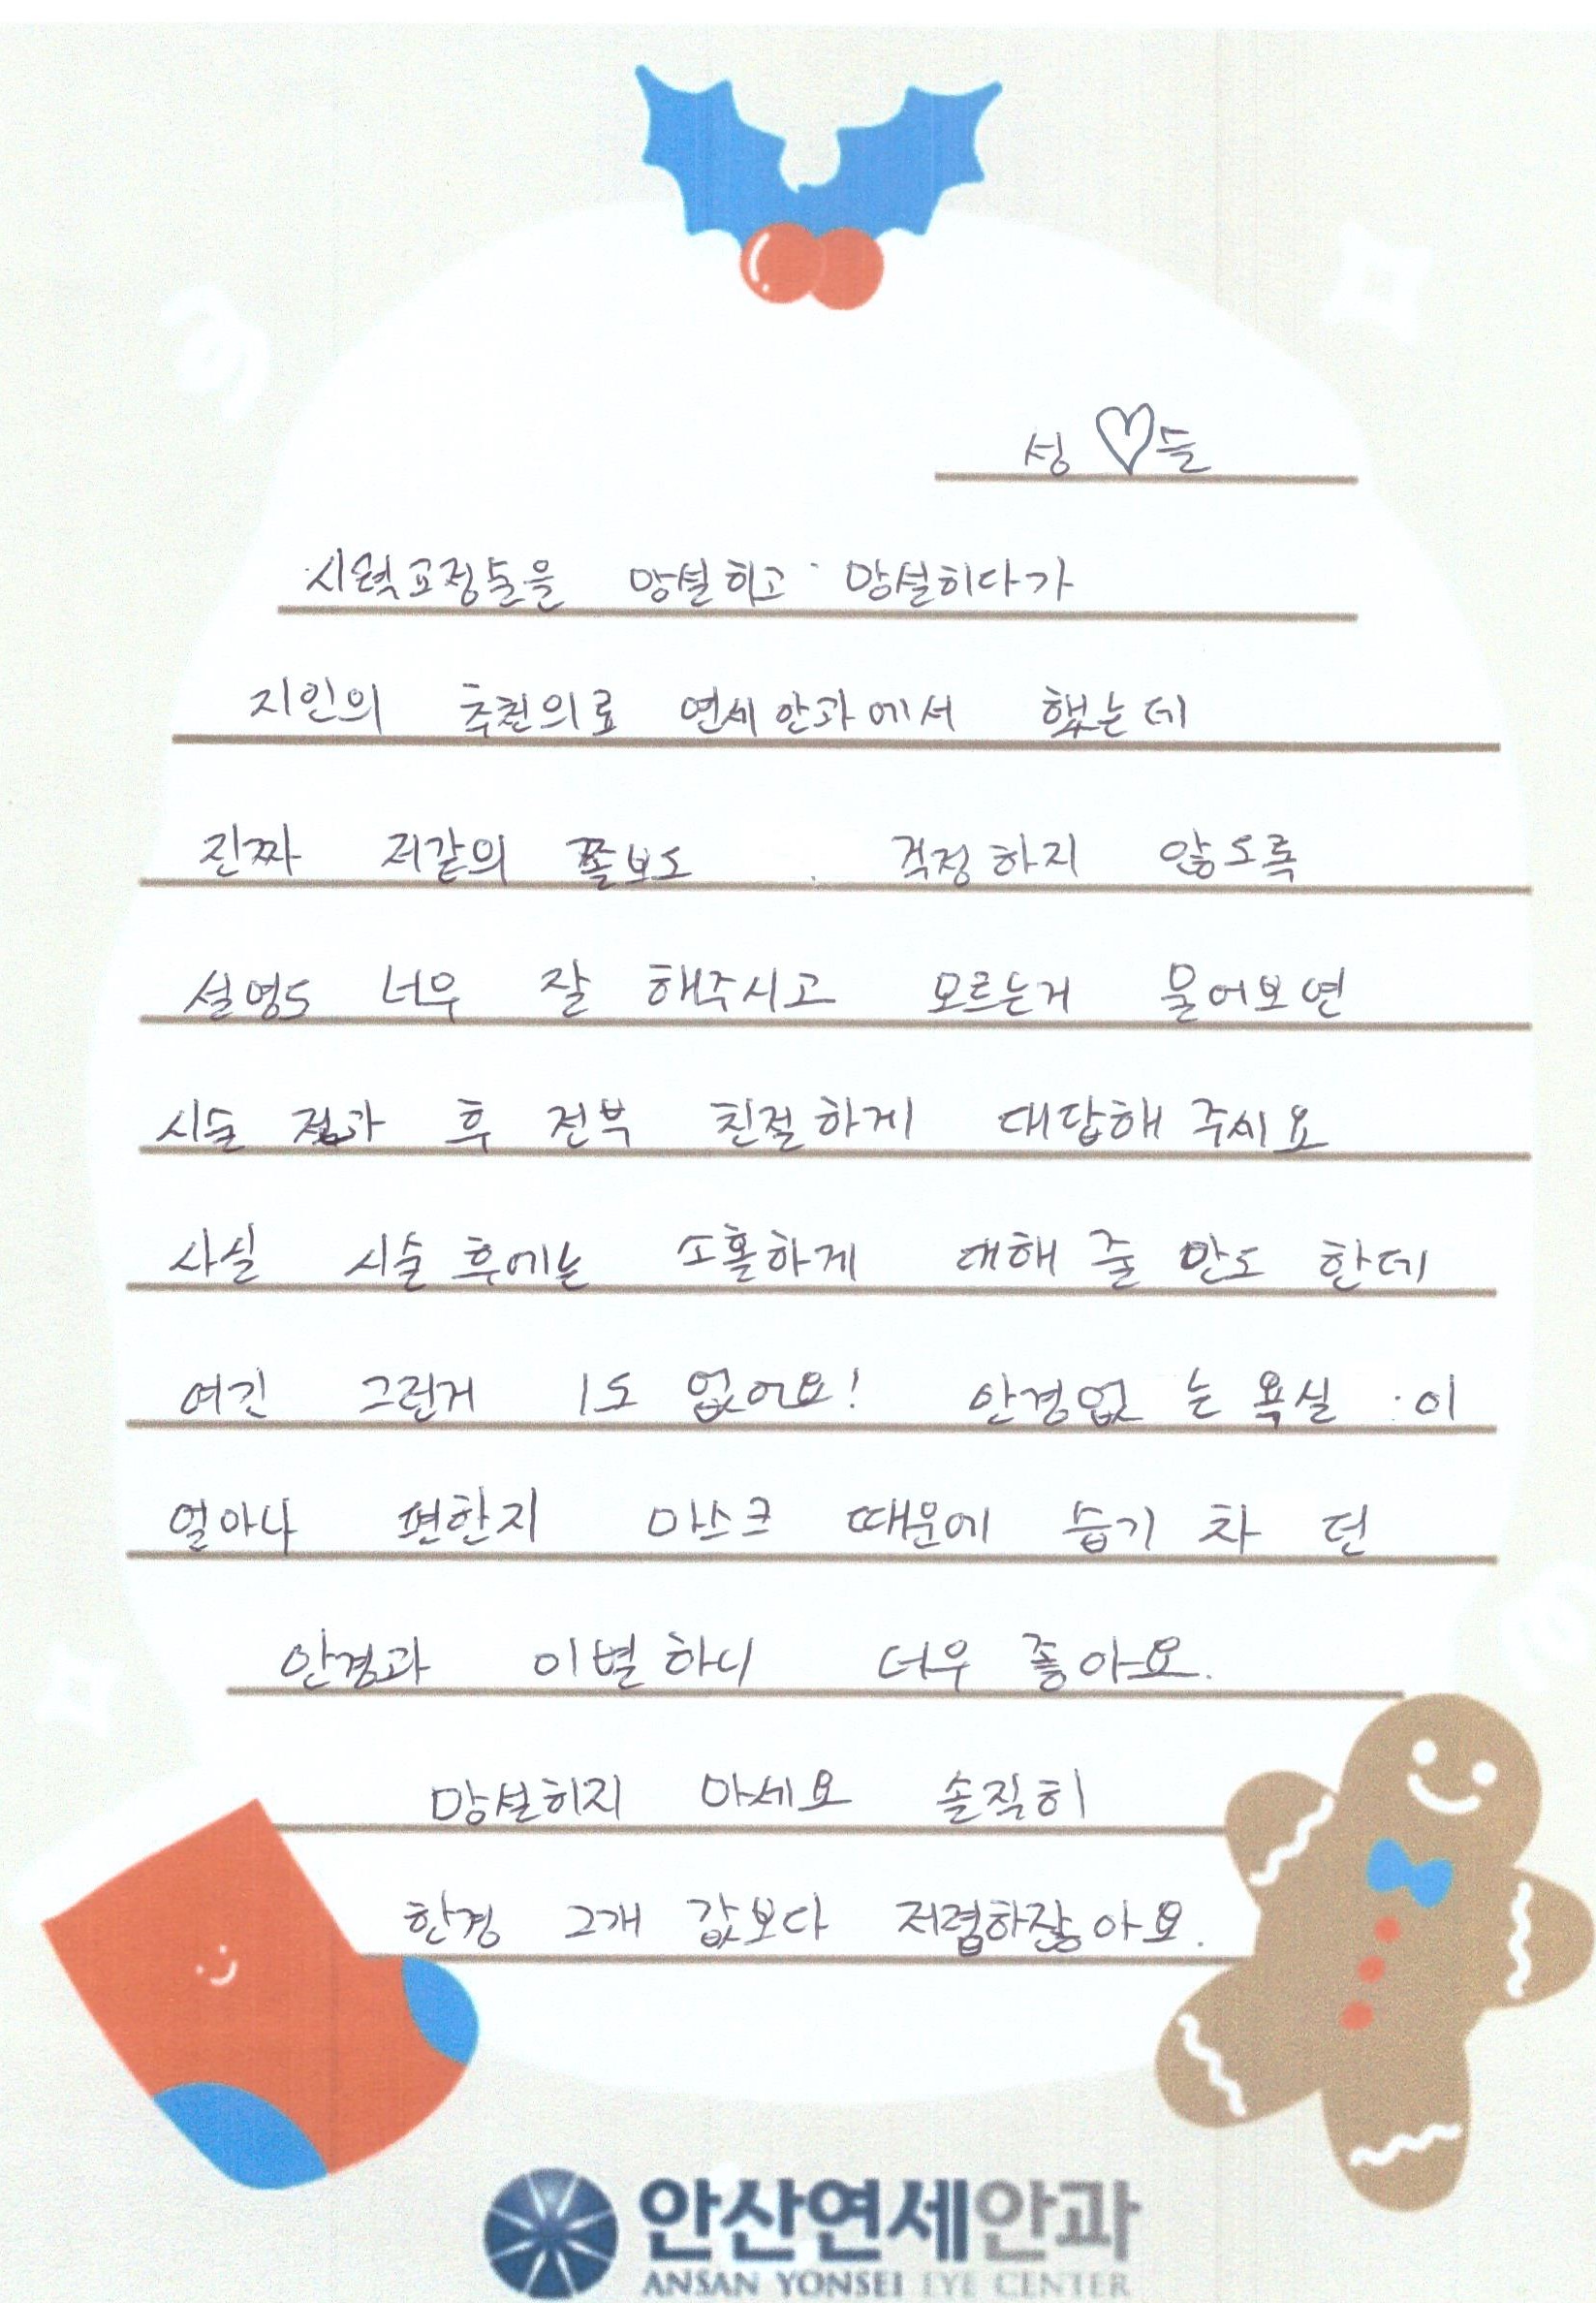 성♡들
시력교정술을 망설히고 망설히다가
지인의 추천의로 연세안과에서 했는데
진짜 저같의 쫄보도 걱정하지 않도록
설명도 너무 잘 해주시고 모르는게 물어보면
시술 전과 후 전부 친절하게 대답해 주세요
사실 시술 후에는 소홀하게 대해 줄 만도 한데
여긴 그런게 1도 없어요! 안경없는 욕실이
얼마나 편한지 마스크 때문에 습기 차던
안경과 이별하니 너무 좋아요.
망설히지 마세요 솔직히
한경 그개 값보다 저렴하잖아요.
안산연세안과
ANSAN YONSEI EYE CENTER